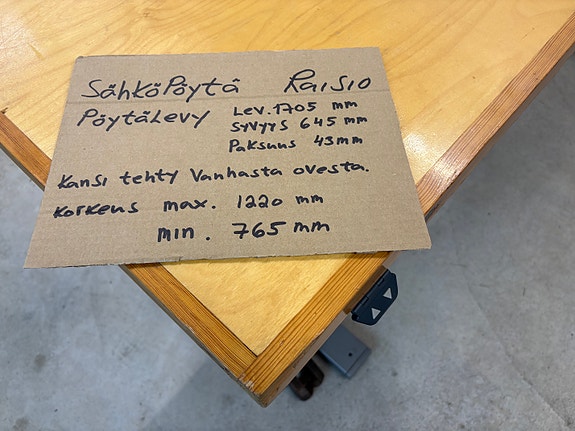 SähköPöytä Raisio
PöytäLevy Lev. 1705 mm
syvyys 645 mm
Paksuus 43 mm
Kansi tehty Vanhasta ovesta.
Korkeus max. 1220 mm
min. 765 mm